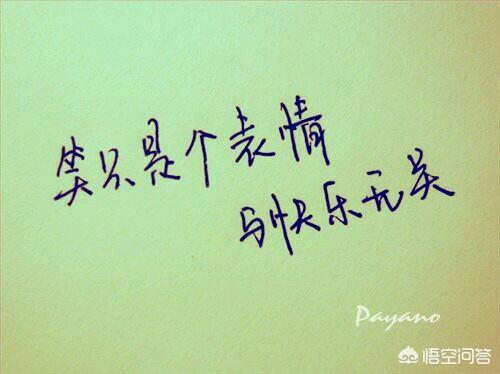 笑只是个表情
与快乐无关
Payano
悟空问答